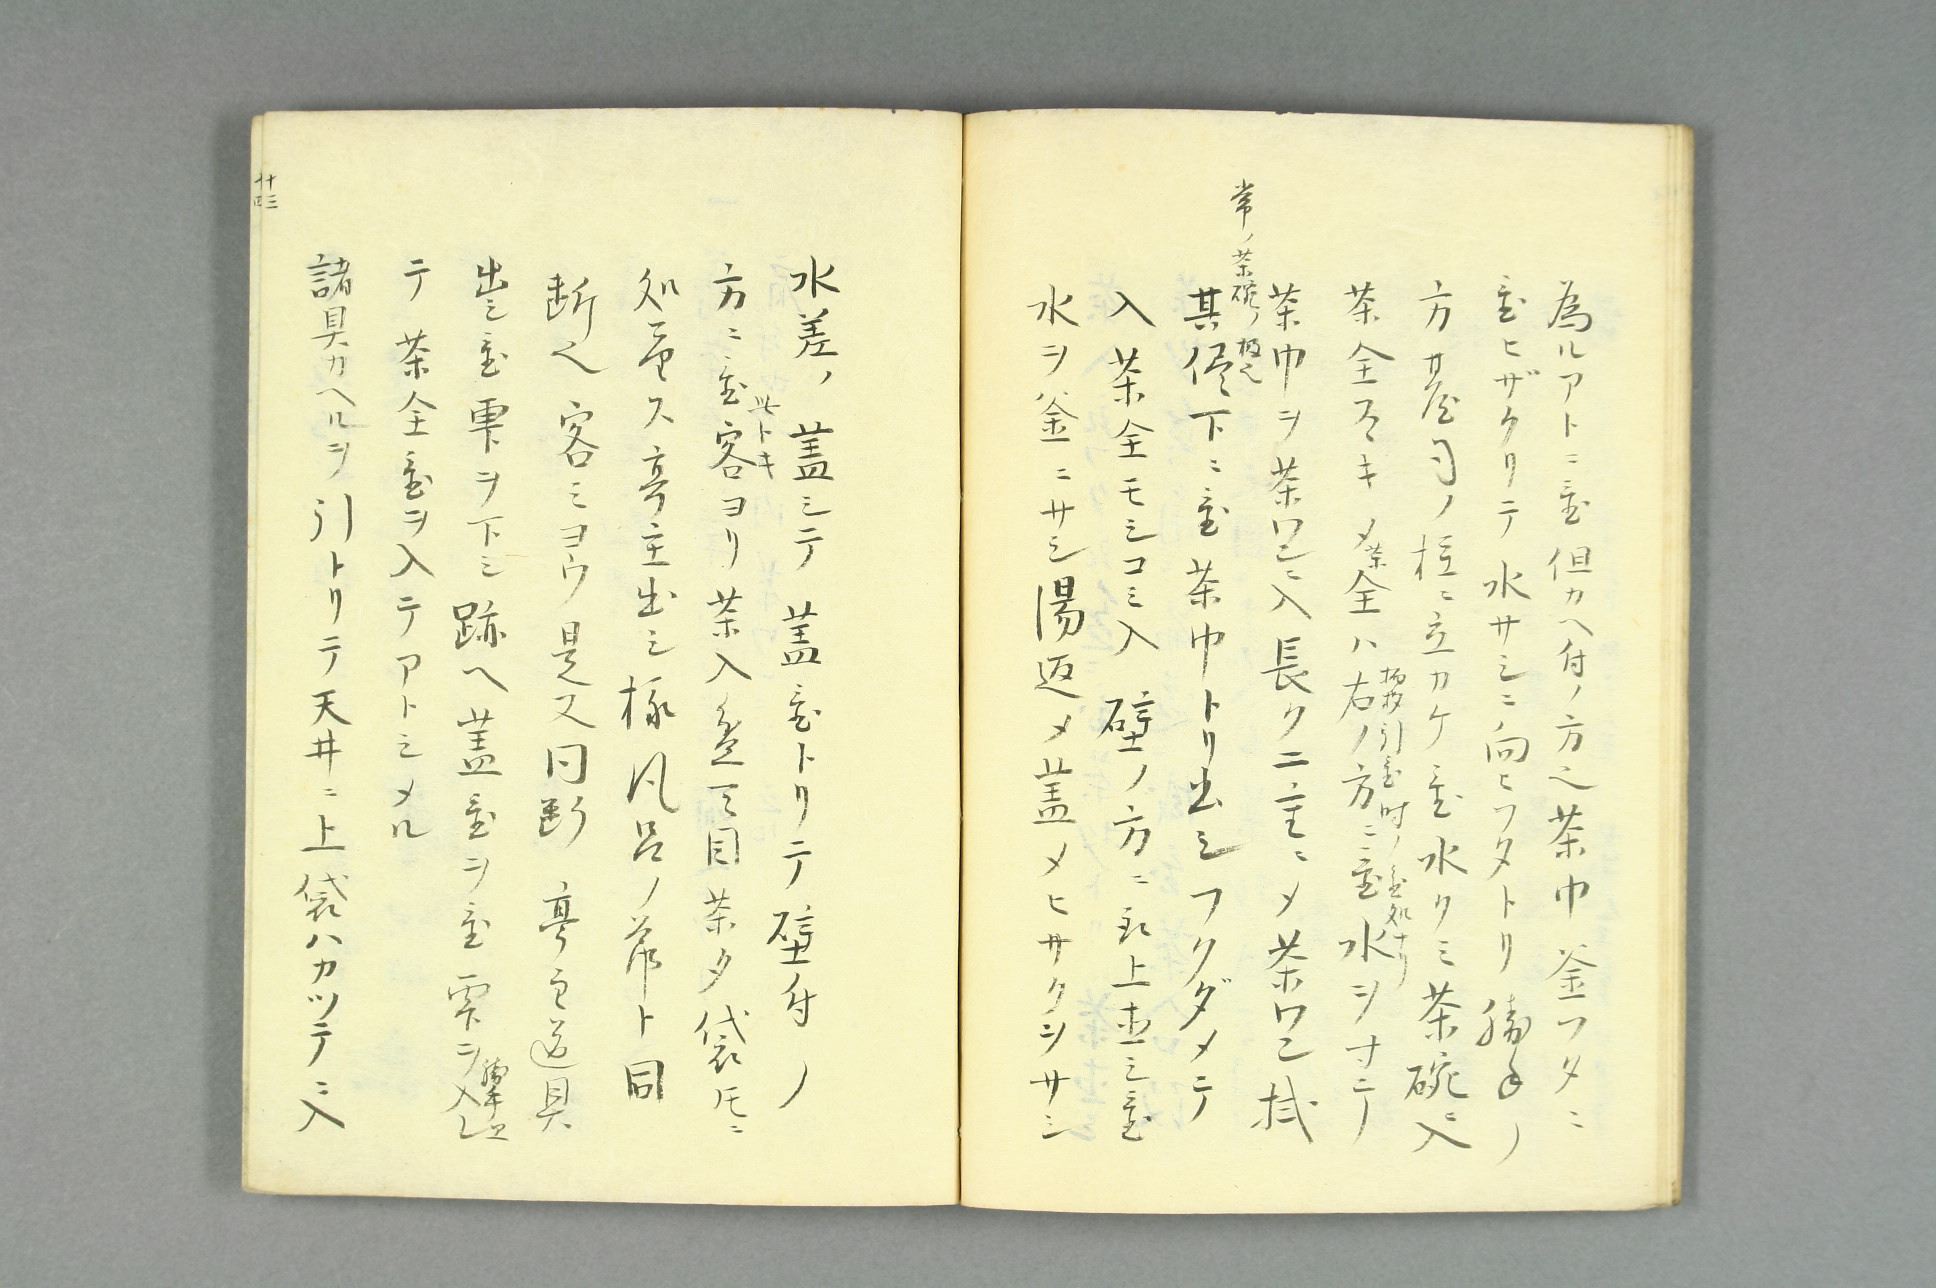 為ルアトニ置但カヘ付ノ方也茶巾釜フタニ
置ヒザクリテ水サシニ向ヒフタトリ勝手ノ
方ノ柱ニ立カケ置水クミ茶碗ニ入
茶全スヽキ〆茶全ハ右ノ方ニ置水ヲすテ
引置時ノ置処ナリ
茶巾ヲ茶ワンニ入長ク二重ニ〆茶ワン拭
常ノ茶碗ノ扱也
其侭下ニ置茶巾トリ出シフクダメテ
入茶全モシコミ入壁ノ方ニ置
水ヲ釜ニサシ湯返〆蓋〆ヒサクヲサシ
水差ノ蓋シテ蓋置トリテ壁付ノ
方ニ置客ヨリ茶入盆天目茶タ袋ドモニ
此トキ
処望ス亭主出シ様凡呂ノ節ト同
断也客ミヨウ是又同断亭主道具
出シ置雫ヲ下シ跡ヘ蓋置ヲ置雫ヲ入レ
勝手ニ
テ茶全置ヲ入テアトシメル
諸具カヘルヲ引トリテ天井ニ上袋ハカツテニ入
廿三
廿四